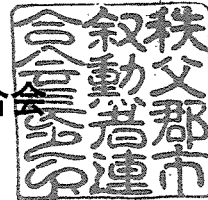 合会
秩父郡市
叙勲者連
合会長之印